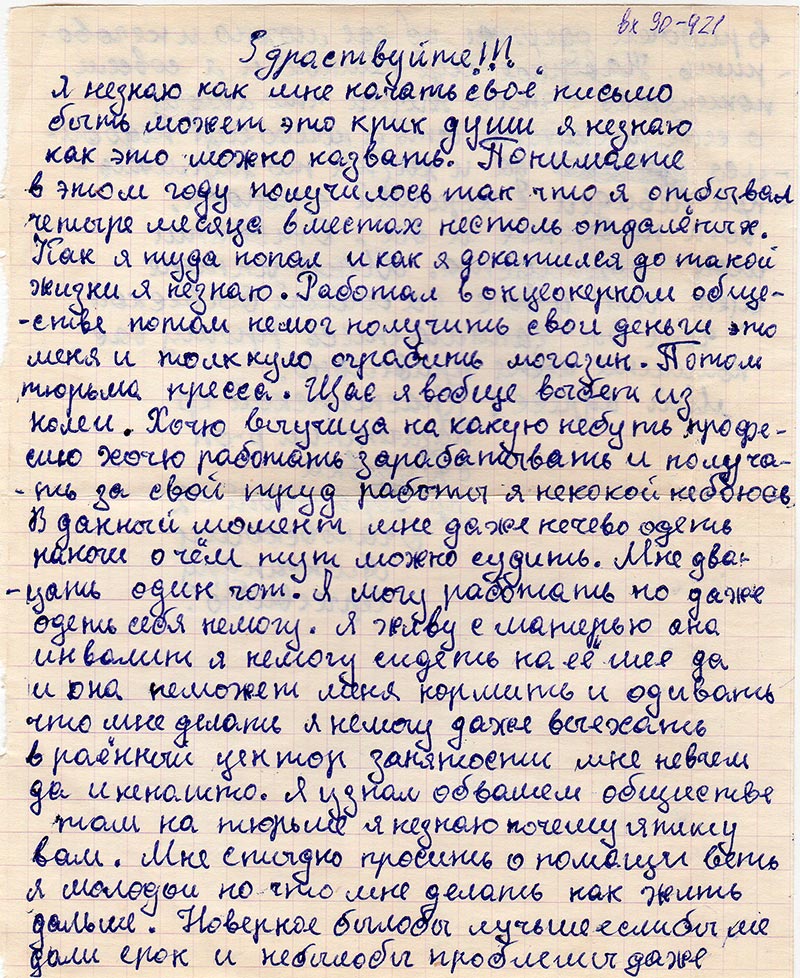 вх 90-921
Здраствуйте!!!
Я незнаю как мне начать "своё" письмо
быть может это крик души я незнаю
как это можно назвать. Понимаете
в этом году получилось так что я отбывал
четыре месяца в местах нестоль отдалёных.
Как я туда попал и как я докатился до такой
жизни я незнаю. Работал в онцеокерном обще-
-стве потом немог получить свои деньги это
меня и толкнуло ограбить могазин. Потом
тюрьма пресса. Щас я вобще выбет из
колеи. Хочю выучица на какую небуть профе-
сию хочю работать зарабатывать и получа-
-ть за свой труд работы я некокой небоюсь.
В данный момент мне даже нечево одеть
наноги о чём тут можно судить. Мне два-
-цать один гот. Я могу работать но даже
одеть себя немогу. Я живу с матерью она
инвалит я немогу сидеть на её шее да
и она неможет меня кормить и одивать
что мне делать я немогу даже выехать
в раённый центор занятости мне невчем
да и ненашто. Я узнал обвашем обществе
там на тюрьме я незнаю почему я пишу
вам. Мне стыдно просить о помощи веть
я молодои но что мне делать как жить
дальше. Новерное былобы лучше еслибы мне
дали срок и небылобы проблемы даже